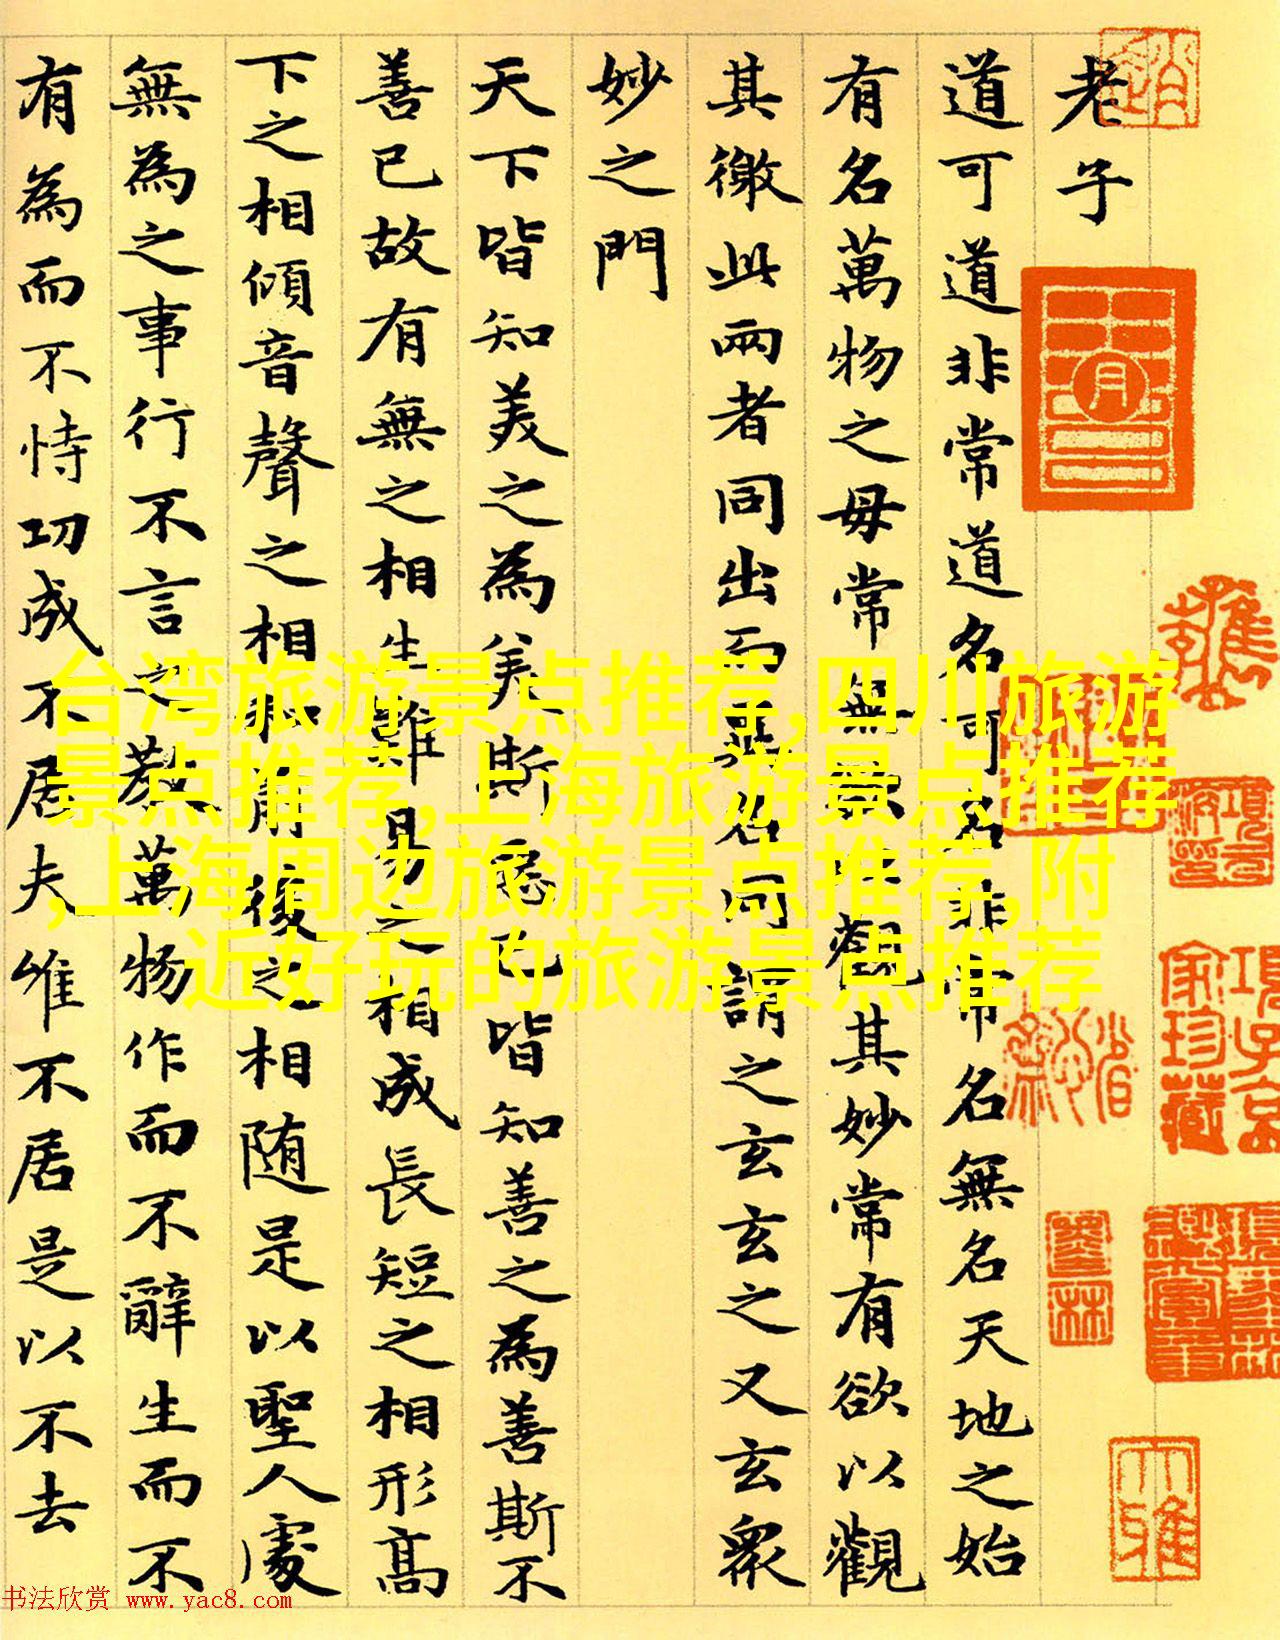 老子
道可道非常道名可名非常名無名天地之始
有名萬物之母常無欲以觀其妙常有欲以觀
其徼此兩者同出而異名同謂之玄玄之又玄衆
妙之門
天下皆知美之為美斯惡已皆知善之為善斯不
善已故有無之相生難易之相成長短之相形高
下之相傾音聲之相和前後之相随是以聖人處
無為之事行不言之教萬物作而不辭生而不
有為而不恃功成不居夫惟不居是以不去
項子京
家珍藏
台湾旅游景点推荐,四川旅游
景点推荐,上海旅游景点推荐
,上海周边旅游景点推荐,附
近好玩的旅游景点推荐
书法欣赏 www.yac8.com